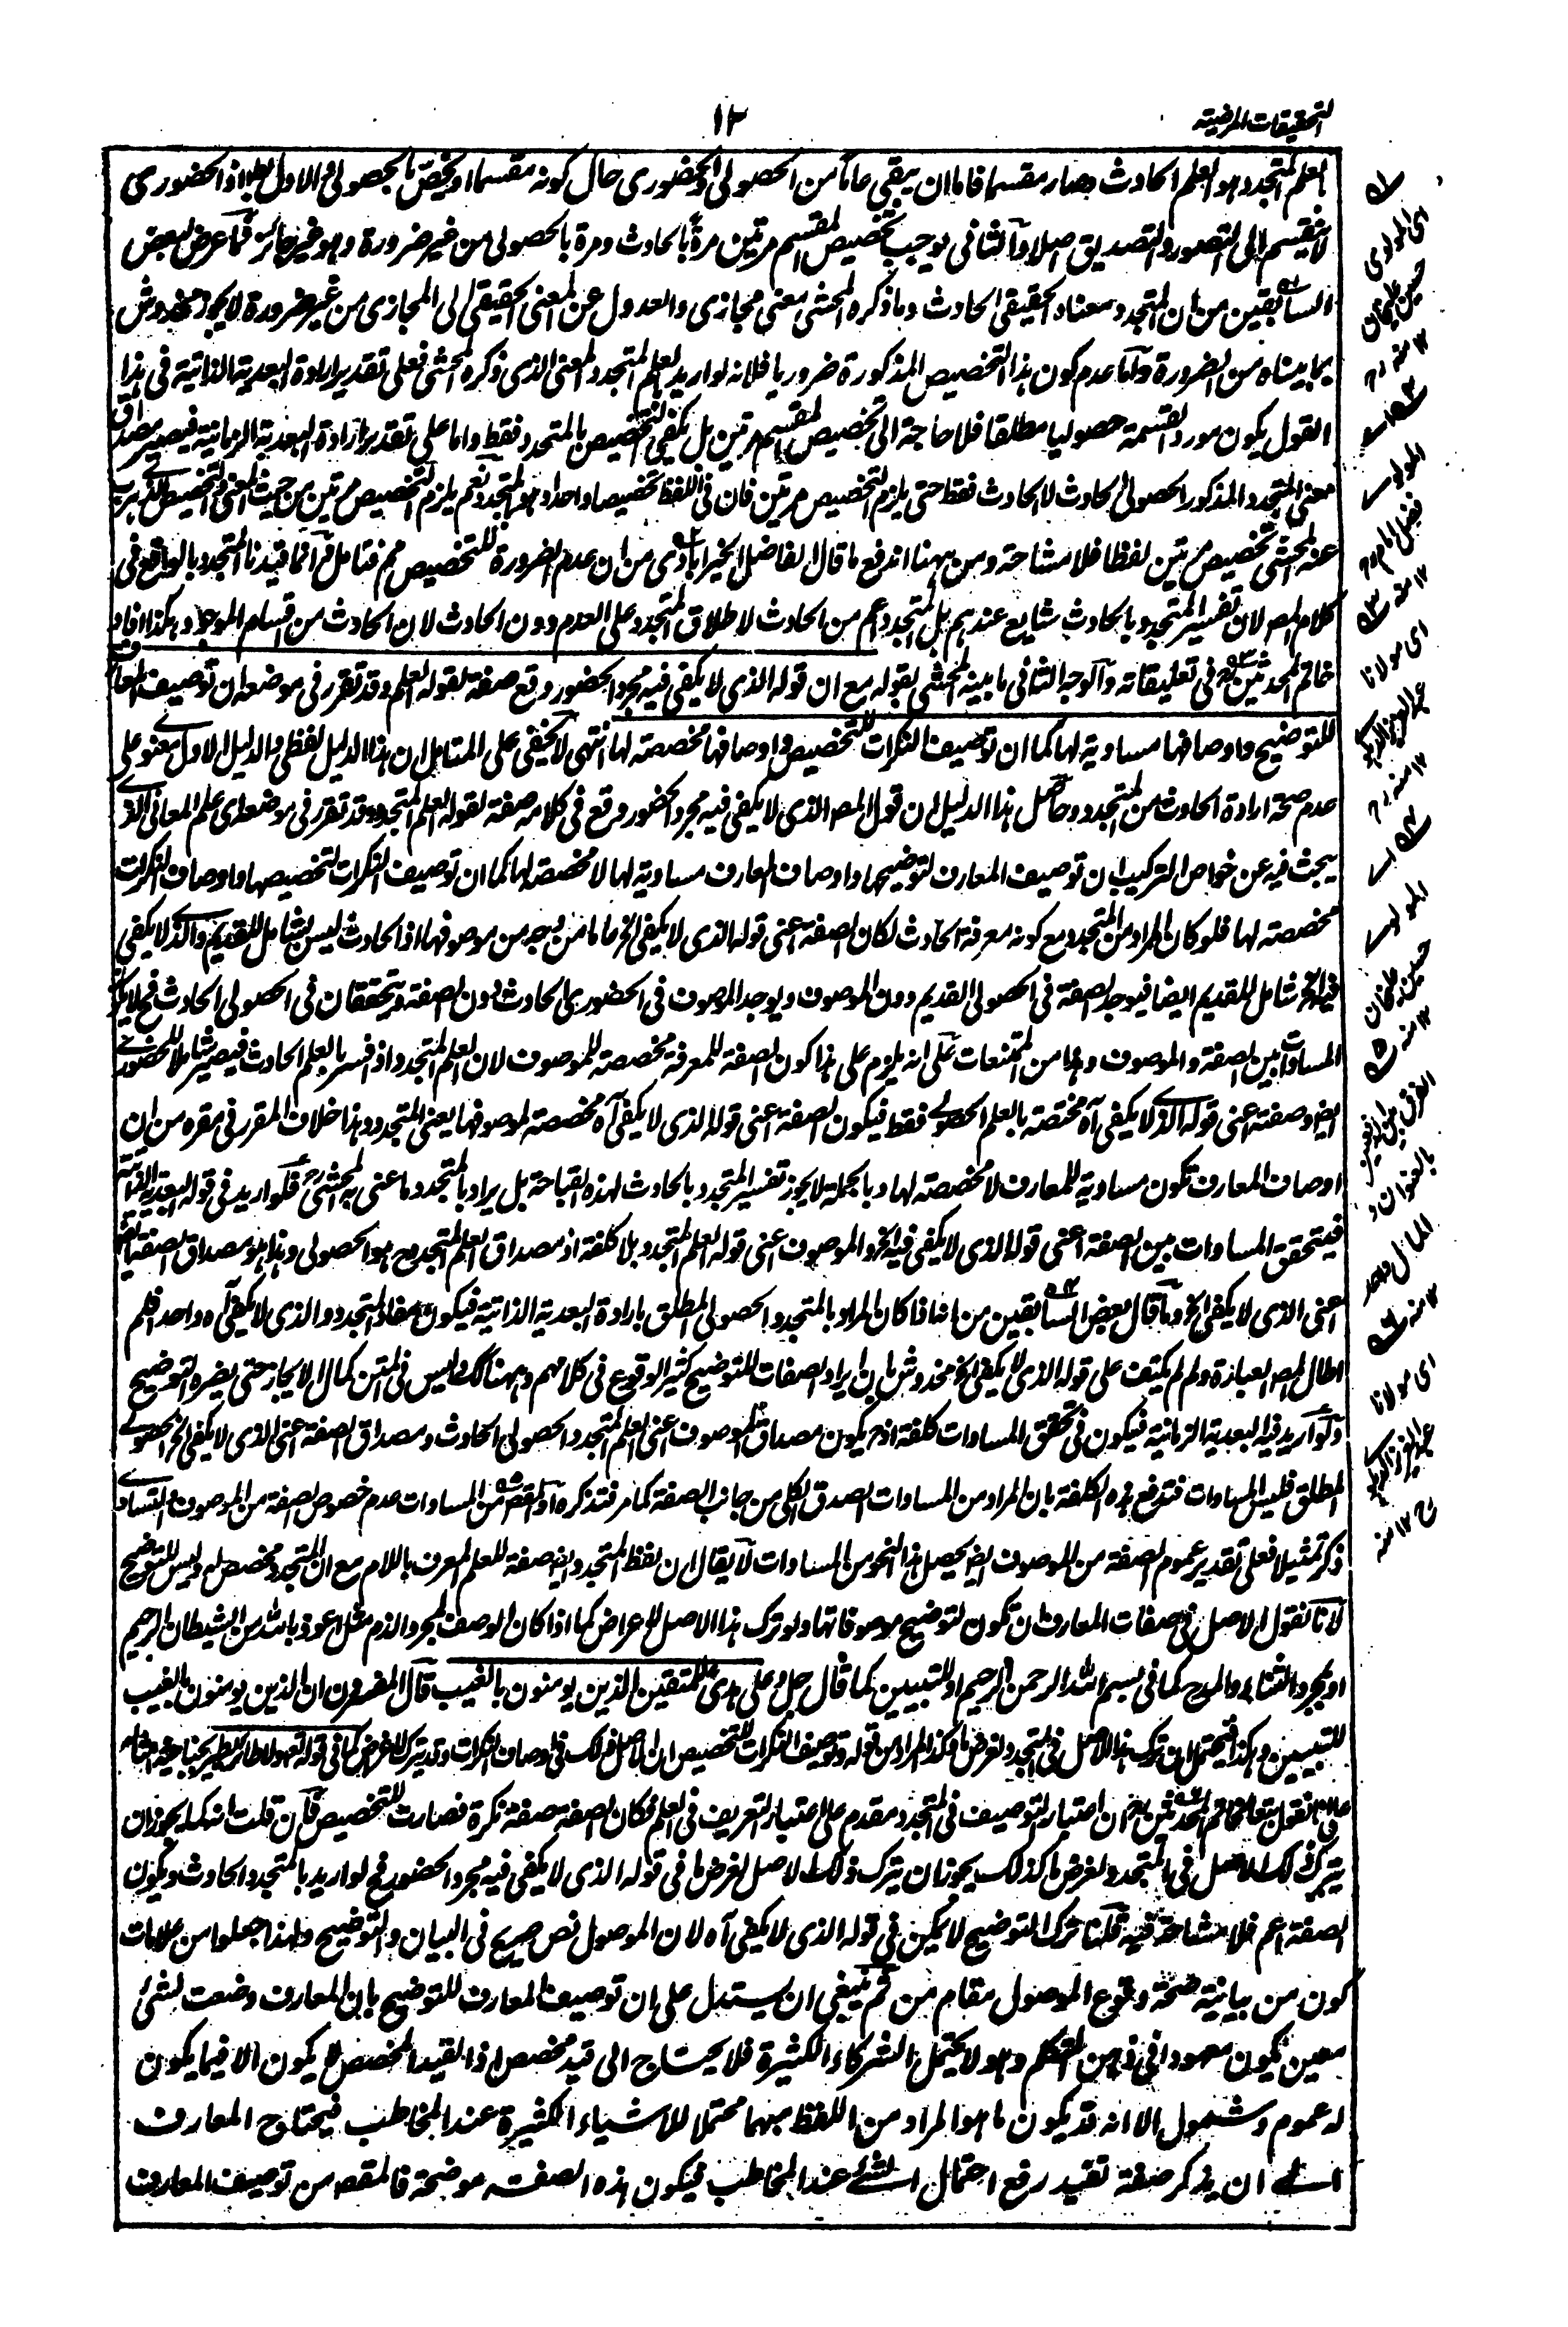 التحقيقات المرضية
١٣
العلم المتجدد هو العلم الحادث وصار مقسما فاما ان يبقى عاما من الحصولى والحضورى حال كونه مقسما او يخص بالحصولى الاول باطل اذ الحضورى
لا ينقسم الى التصور والتصديق اصلا والثانى يوجب تخصيص المقسم مرتين مرة بالحادث ومرة بالحصولى من غير ضرورة وهو غير جائز فما عرض لبعض
السابقين من ان المتجدد معناه الحقيقى الحادث وما ذكره المحشى معنى مجازى والعدول عن المعنى الحقيقى الى المجازى من غير ضرورة لا يجوز مخدوش
بما بيناه من الضرورة واما عدم كون هذا التخصيص المذكورة ضروريا فلانه لو اريد بالعلم المتجدد المعنى الذى ذكره المحشى فعلى تقدير ارادة البعدية الذاتية فى هذا
القول يكون مورد القسمة حصوليا مطلقا فلا حاجة الى تخصيص المقسم مرتين بل يكفى التخصيص بالمتجدد فقط واما على تقدير ارادة البعدية الزمانية فيصير مصداق
معنى المتجدد المذكور الحصولى الحادث لا الحادث فقط حتى يلزم التخصيص مرتين فان فى اللفظ تخصيصا واحدا وهو المتجدد نعم يلزم التخصيص مرتين من حيث المعنى والتخصيص الذى هرب
عنه المحشى تخصيص مرتين لفظا فلا مشاحة ومن ههنا اندفع ما قال الفاضل الخيرابادى من ان عدم الضرورة للتخصيص مم فتامل ثم انما قيدنا المتجدد بالواقع فى
كلام المصـ لان تفسير المتجدد بالحادث شايع عندهم بل المتجدد اعم من الحادث لاطلاق المتجدد على العدم دون الحادث لان الحادث من اقسام الموجود وهكذا افاد
خاتم المحدثين فى تعليقاته والوجه الثانى ما بينه المحشى بقوله مع ان قوله الذى لا يكفى فيه مجرد الحضور وقع صفة لقوله العلم وقد تقرر فى موضعه ان توصيف المعارف
للتوضيح واوصافها مساوية لها كما ان توصيف النكرات للتخصيص واوصافها مخصصة لها انتهى لا يخفى على المتامل ان هذا الدليل لفظى والدليل الاول معنوى على
عدم صحة ارادة الحادث من المتجدد وحاصل هذا الدليل ان قول المصـ الذى لا يكفى فيه مجرد الحضور وقع فى كلامه صفة لقوله العلم المتجدد وقد تقرر فى موضعه اى علم المعانى الذى
يبحث فيه عن خواص التركيب ان توصيف المعارف لتوضيحها واوصاف المعارف مساوية لها لا مخصصة لها كما ان توصيف النكرات لتخصيصها واوصاف النكرات
مخصصة لها فلو كان المراد من المتجدد مع كونه معرفة الحادث لكان الصفة اعنى قوله الذى لا يكفى الخ عاما من وجه من موصوفها اذ الحادث ليس بشامل للقديم والذى لا يكفى
فيه الخ شامل للقديم ايضا فيوجد الصفة فى الحصولى القديم دون الموصوف ويوجد الموصوف فى الحضورى الحادث دون الصفة ويتحققان فى الحصولى الحادث فح لا يكون
المساوات بين الصفة والموصوف وهذا من الممتنعات على انه يلزم على هذا كون الصفة للمعرفة مخصصة للموصوف لان العلم المتجدد اذا فسر بالعلم الحادث فيصير شاملا للحضورى
ايضا وصفته اعنى قوله الذى لا يكفى آه مختصة بالعلم الحصولى فقط فيكون الصفة اعنى قوله الذى لا يكفى آه مخصصة لموصوفها يعنى المتجدد وهذا خلاف المقرر فى مقره من ان
اوصاف المعارف تكون مساوية للمعارف لا مخصصة لها وبالجملة لا يجوز تفسير المتجدد بالحادث لهذه القباحة بل يراد بالمتجدد ما عنى به المحشى فلو اريد فى قوله البعدية الذاتية
فيتحقق المساوات بين الصفة اعنى قوله الذى لا يكفى فيه الخ والموصوف اعنى قوله العلم المتجدد بلا كلفة اذ مصداق العلم المتجدد ح هو الحصولى وهذا هو مصداق الصفة ايضا
اعنى الذى لا يكفى الخ وما قال بعض السابقين من انا اذا كان المراد بالمتجدد الحصولى المطلق بارادة البعدية الذاتية فيكون مفاد المتجدد والذى لا يكفى آه واحد افلم
اطال المصـ العبارة ولم لم يكتف على قوله الذى لا يكفى الخ مخدوش بان ايراد الصفات للتوضيح كثير الوقوع فى كلامهم وههنا كك وليس فى المتن كمال الايجاز حتى يضره التوضيح
ولو اريد فيه البعدية الزمانية فيكون فى تحقق المساوات كلفة اذ ح يكون مصداق الموصوف اعنى العلم المتجدد الحصولى الحادث ومصداق الصفة اعنى الذى لا يكفى الخ الحصولى
المطلق فليس المساوات فتدفع هذه الكلفة بان المراد من المساوات الصدق الكلى من جانب الصفة كما مر فتذكره او المقصـ من المساوات عدم خصوص الصفة من الموصوف والتساوى
ذكر تمثيلا فعلى تقدير عموم الصفة من الموصوف ايضا يحصل هذا النحو من المساوات لا يقال ان لفظ المتجدد ايضا صفة للعلم المعرف باللام مع ان المتجدد مخصص له وليس للتوضيح
لانا نقول الاصل فى صفات المعارف ان تكون لتوضيح موصوفاتها ولو ترك هذا الاصل لاعراض كما اذا كان الوصف لمجرد الذم مثل اعوذ بالله من الشيطان الرجيم
او لمجرد الثناء والمدح كما فى بسم الله الرحمن الرحيم او للتبيين كما قال جل وعلى هدى للمتقين الذين يومنون بالغيب قال المفسرون ان الذين يومنون بالغيب
للتبيين وهكذا فيحتمل ان ترك هذا الاصل فى المتجدد لغرض ما وكذا المراد من قوله وتوصيف النكرات للتخصيص ان الاصل ذلك فى اوصاف النكرات وقد يترك لاغراض كما فى قوله تعـ ولا طائر يطير بجناحيه
نقول ان اعتبار التوصيف فى المتجدد مقدم على اعتبار التعريف فى العلم فكان الصفة صفة نكرة فصارت للتخصيص فان قلت انه كما يجوز ان
يترك ذلك الاصل فى المتجدد لغرض ما كذلك يجوز ان يترك ذلك الاصل لغرض ما فى قوله الذى لا يكفى فيه مجرد الحضور فح لو اريد بالمتجدد الحادث ويكون
الصفة اعم فلا مشاحة فيه قلنا ترك التوضيح لا يمكن فى قوله الذى لا يكفى آه لان الموصول نص صريح فى البيان والتوضيح ولهذا جعلوا من علامات
كون من بيانية صحة وقوع الموصول مقام من ثم ينبغى ان يستدل على ان توصيف المعارف للتوضيح بان المعارف وضعت لشئ
معين يكون معهودا فى ذهن المتكلم وهو لا يحتمل الشركاء الكثيرة فلا يحتاج الى قيد مخصص اذ القيد المخصص لا يكون الا فيما يكون
له عموم وشمول الا انه قد يكون ما هو المراد من اللفظ مبهما محتملا للاشياء الكثيرة عند المخاطب فيحتاج المعارف
الى ان يذكر صفة تفيد رفع احتمال الشئ عند المخاطب فيكون هذه الصفت موضحة فالمقصـ من توصيف المعارف
اى المولوى
حسين عليخان
١٢ منه رح
المولوى
فضل امام رح
١٢ منه
اى مولانا
عبد العزيز الدهلوى
١٢ منه رح
المولوى
حسين عليخان
١٢ منه
الفرق بين
بالعنوان و
المآل واحد
١٢ منه
اى مولانا
عبد العزيز الدهلوى
رح ١٢ منه